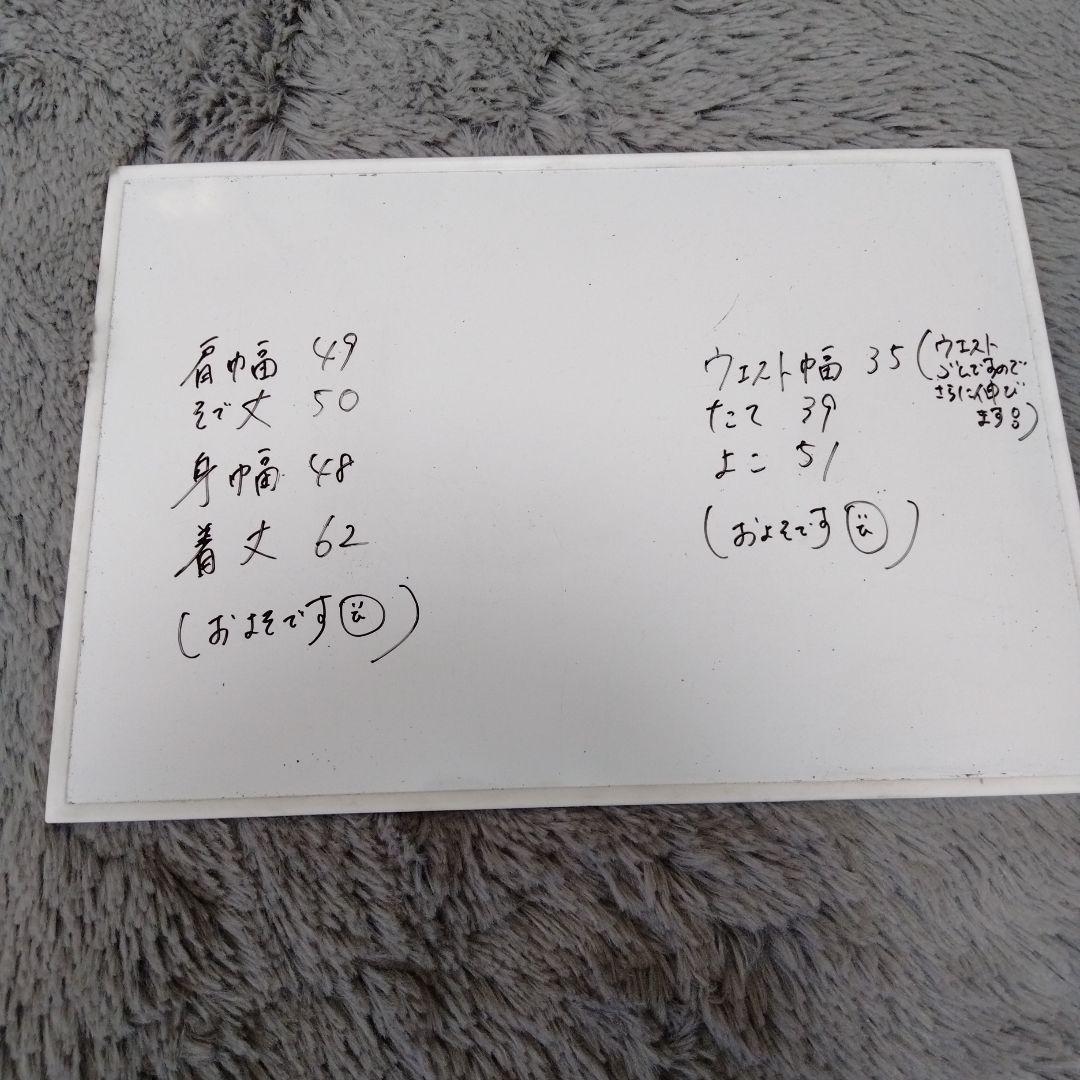 肩巾幅 49
そで丈 50
身巾幅 48
着丈 62
(およそです)
ウエスト巾幅 35 (ウエスト
ゴムですので
さらに伸び
ます。)
たて 39
よこ 51
(およそです)